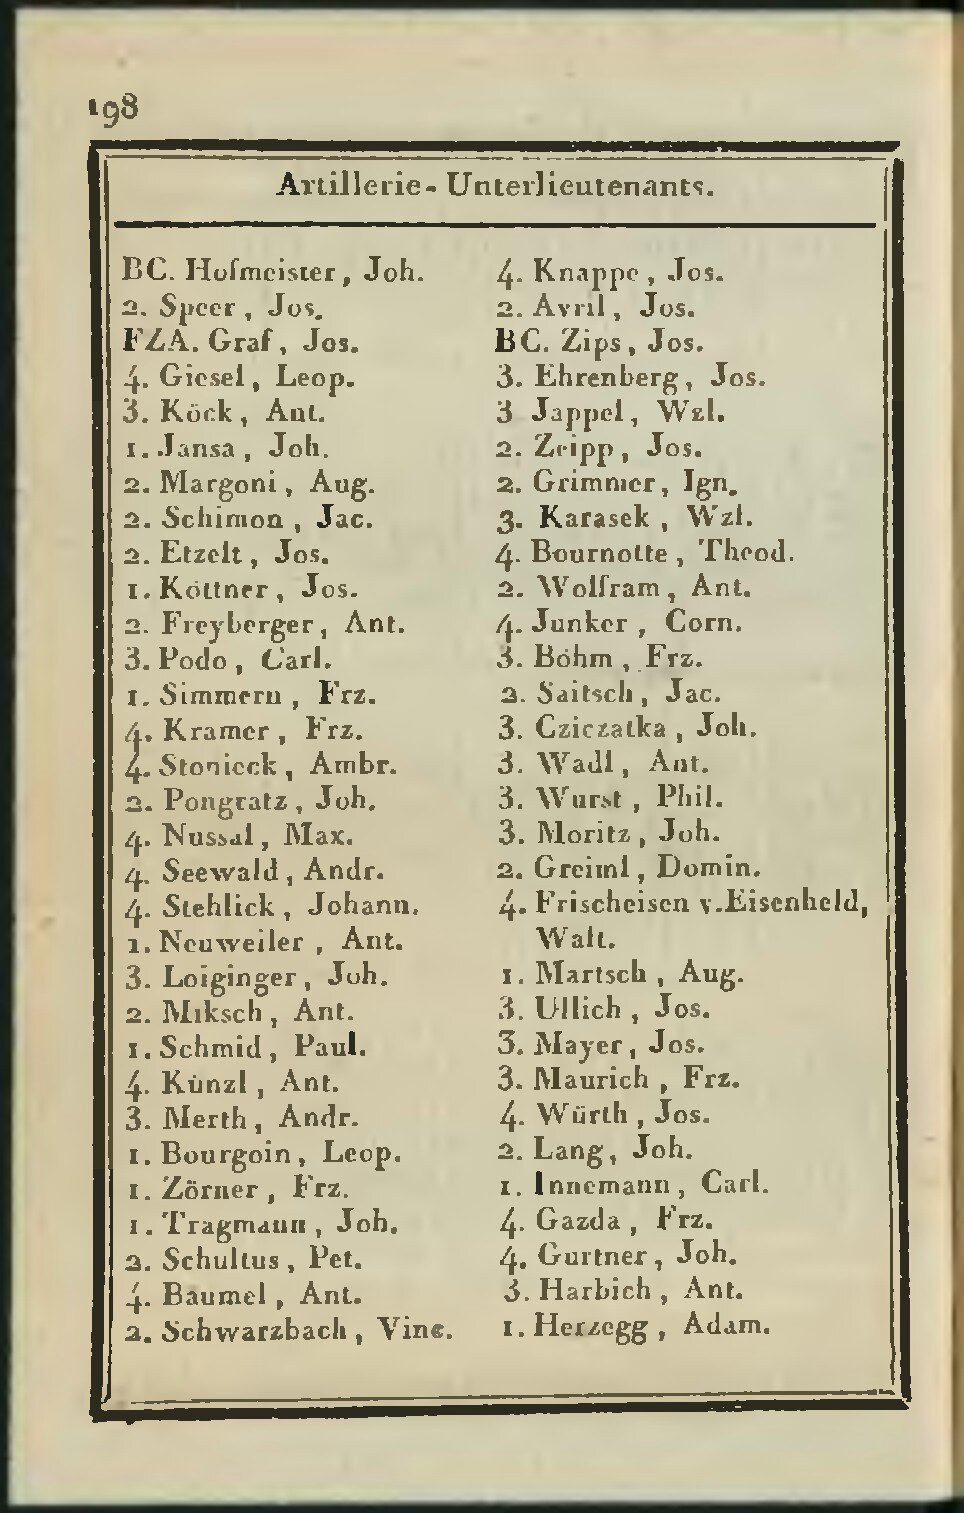 198
Artillerie-Unterlieutenants.
BC. Hofmeister, Joh.
2. Speer, Jos.
FZA. Graf, Jos.
4. Giesel, Leop.
3. Köck, Ant.
1. Jansa, Joh.
2. Margoni, Aug.
2. Schimon, Jac.
2. Etzelt, Jos.
1. Köttner, Jos.
2. Freyberger, Ant.
3. Podo, Carl.
1. Simmern, Frz.
4. Kramer, Frz.
4. Stonieck, Ambr.
2. Pongratz, Joh.
4. Nussal, Max.
4. Seewald, Andr.
4. Stehlick, Johann.
1. Neuweiler, Ant.
3. Loiginger, Joh.
2. Miksch, Ant.
1. Schmid, Paul.
4. Künzl, Ant.
3. Merth, Andr.
1. Bourgoin, Leop.
1. Zörner, Frz.
1. Tragmann, Joh.
2. Schultus, Pet.
4. Bäumel, Ant.
2. Schwarzbach, Vinc.
4. Knappe, Jos.
2. Avril, Jos.
BC. Zips, Jos.
3. Ehrenberg, Jos.
3 Jappel, Wzl.
2. Zeipp, Jos.
2. Grimmer, Ign.
3. Karasek, Wzl.
4. Bournotte, Theod.
2. Wolfram, Ant.
4. Junker, Corn.
3. Böhm, Frz.
2. Saitsch, Jac.
3. Cziczatka, Joh.
3. Wadl, Ant.
3. Wurst, Phil.
3. Moritz, Joh.
2. Greiml, Domin.
4. Frischeisen v. Eisenheld,
Walt.
1. Martsch, Aug.
3. Ullich, Jos.
3. Mayer, Jos.
3. Maurich, Frz.
4. Würth, Jos.
2. Lang, Joh.
1. Innemann, Carl.
4. Gazda, Frz.
4. Gurtner, Joh.
3. Harbich, Ant.
1. Herzegg, Adam.